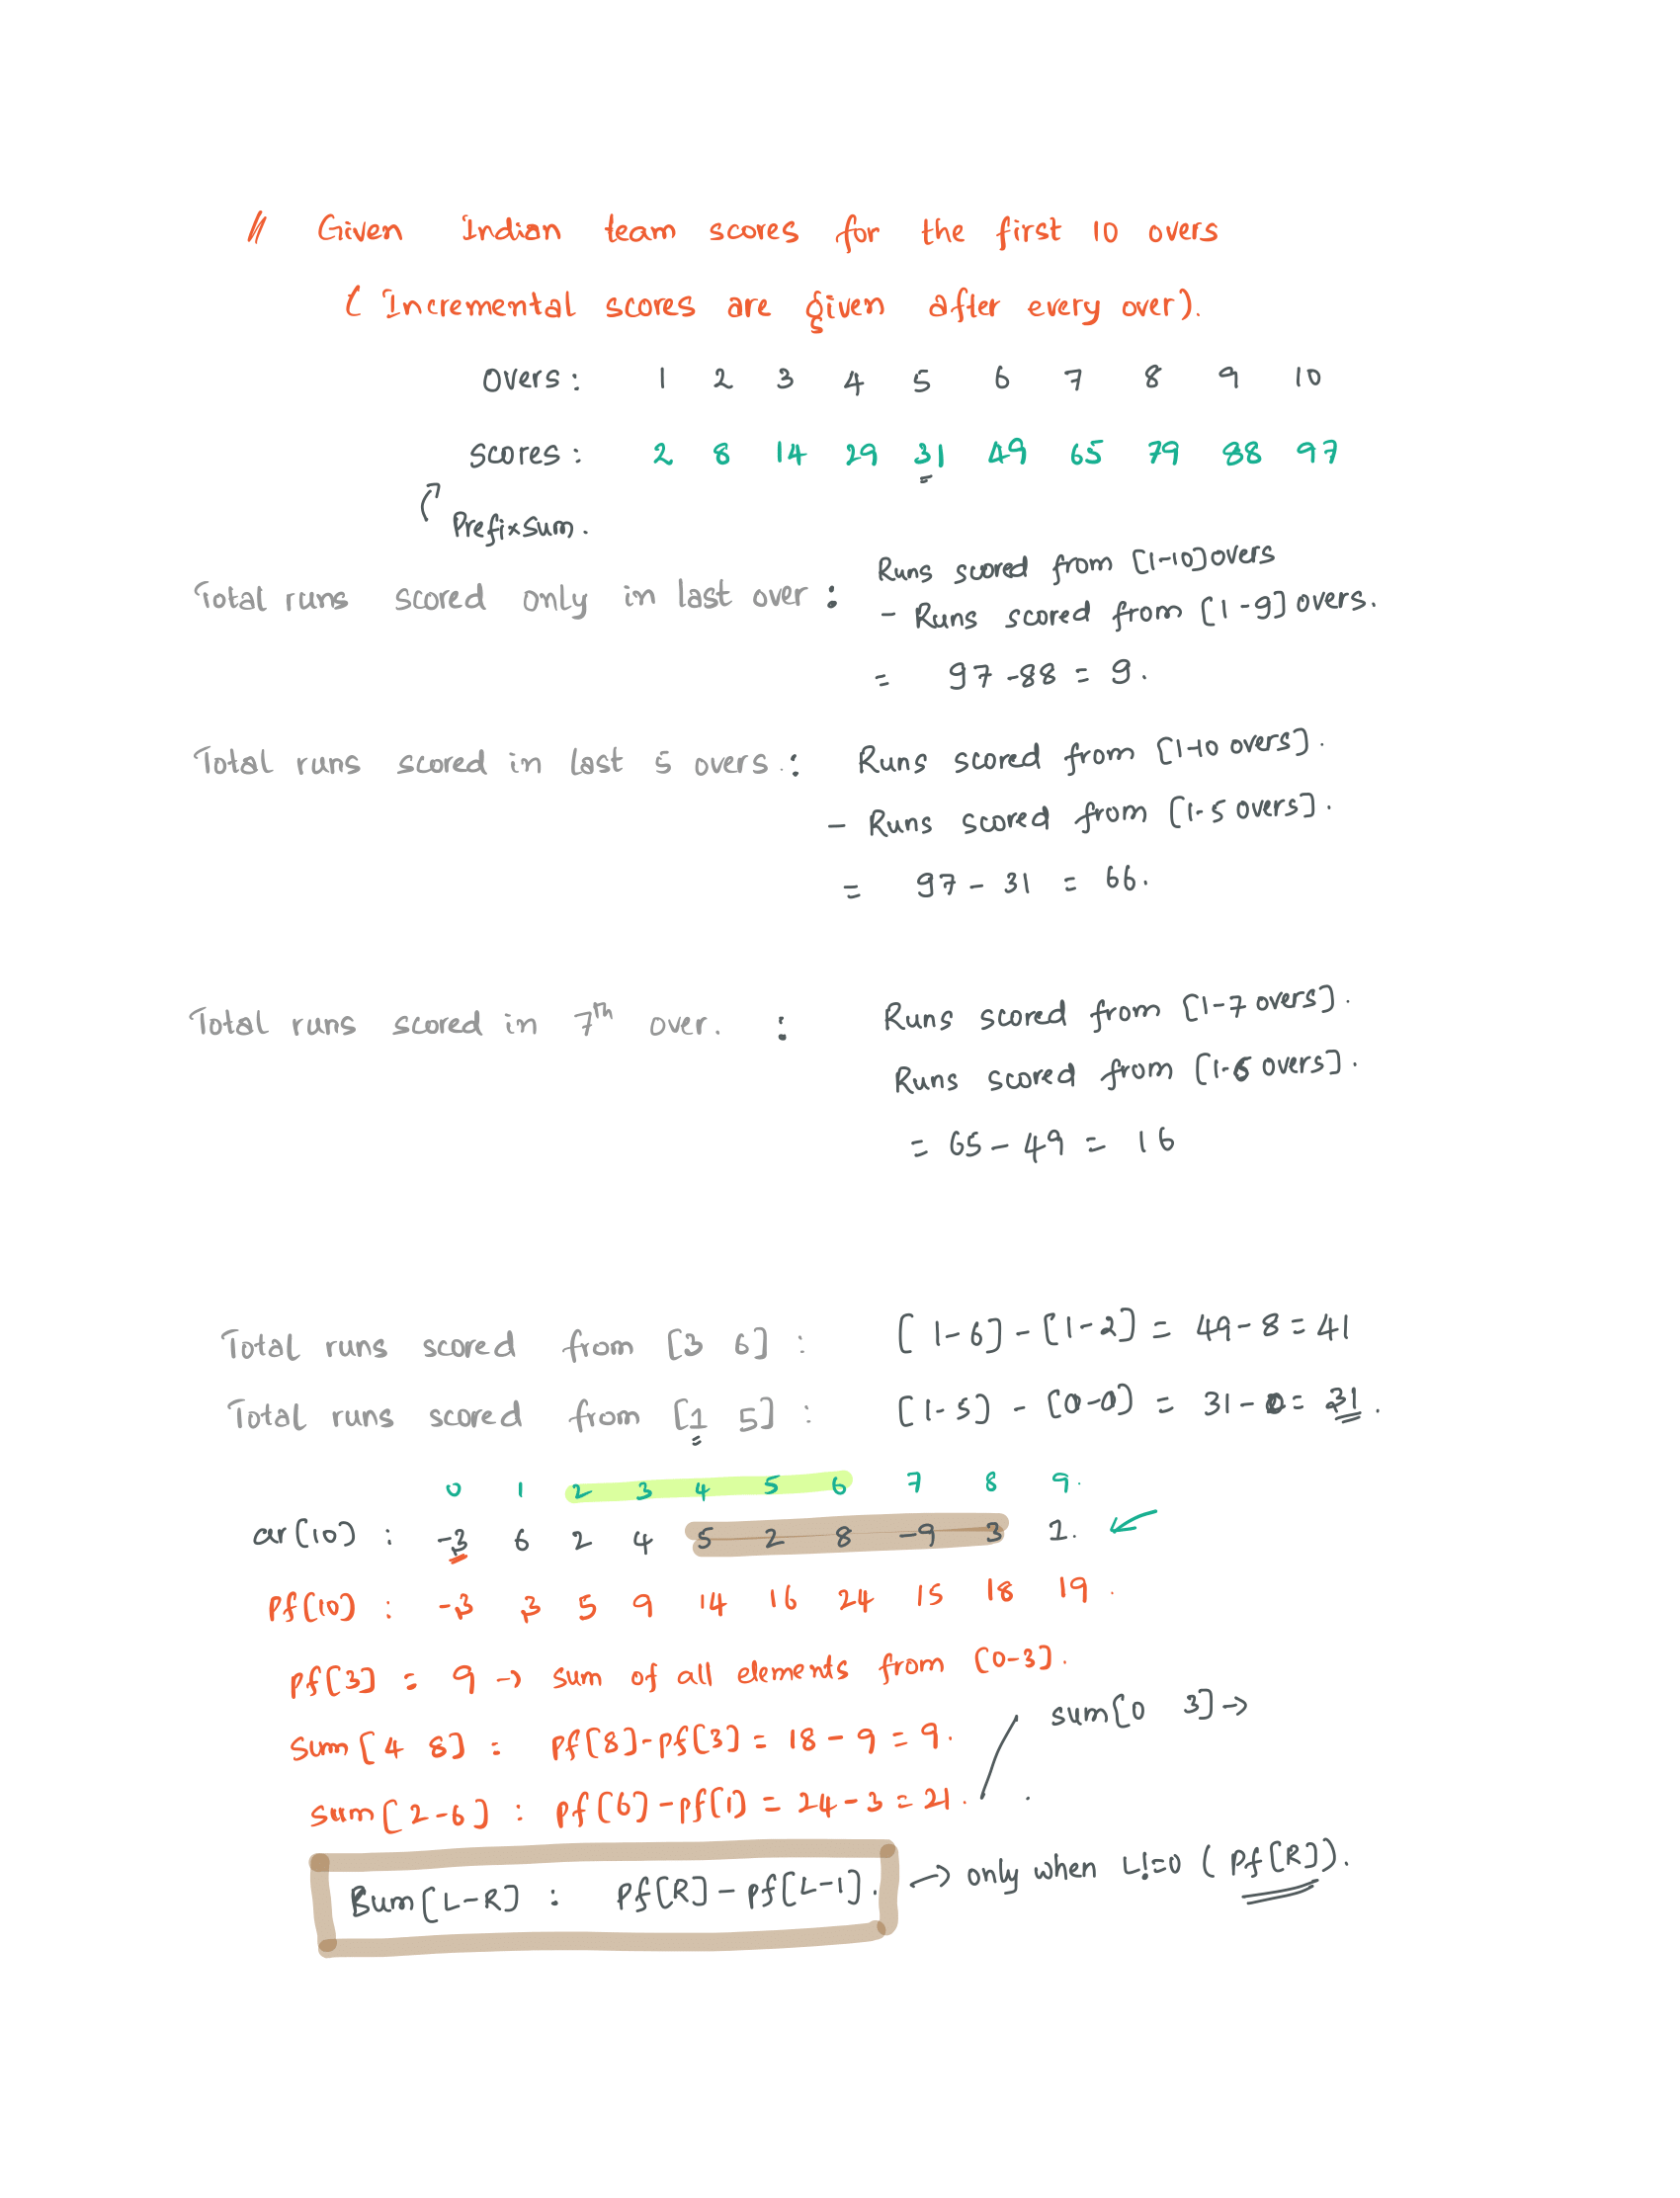 // Given Indian team scores for the first 10 overs
( Incremental scores are given after every over).
Overs : 1 2 3 4 5 6 7 8 9 10
Scores : 2 8 14 29 31 49 65 79 88 97
Prefixsum.
Total runs scored only in last over : Runs scored from [1-10] overs
- Runs scored from [1-9] overs.
= 97-88 = 9.
Total runs scored in last 5 overs. : Runs scored from [1-10 overs].
- Runs scored from [1-5 overs].
= 97 - 31 = 66.
Total runs scored in 7th over. : Runs scored from [1-7 overs].
Runs scored from [1-6 overs].
= 65 - 49 = 16
Total runs scored from [3 6] : [1-6] - [1-2] = 49-8 = 41
Total runs scored from [1 5] : [1-5] - [0-0] = 31-0 = 31.
0 1 2 3 4 5 6 7 8 9.
ar(10) : -3 6 2 4 5 2 8 -9 3 1.
Pf(10) : -3 3 5 9 14 16 24 15 18 19.
Pf[3] = 9 → sum of all elements from [0-3].
sum[0 3] →
Sum[4 8] : Pf[8]-Pf[3] = 18 - 9 = 9.
sum[2-6] : Pf[6]-Pf[1] = 24-3 = 21.
Sum[L-R] : Pf[R] - Pf[L-1]. → only when L!=0 ( Pf[R]).